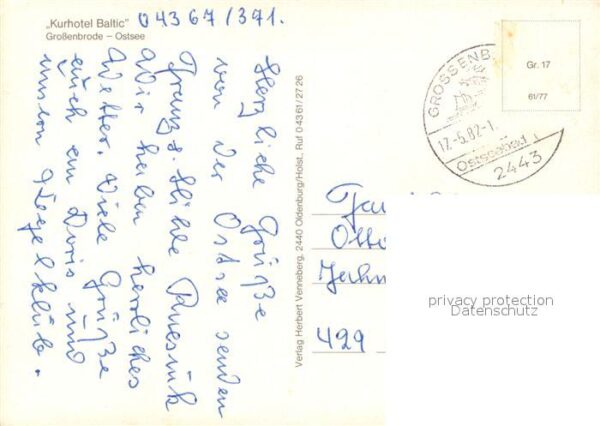 „Kurhotel Baltic" 04367/371.
Großenbrode – Ostsee
Herzliche Grüße
von der Ostsee senden
Franz u. Hilde
Wir haben herrliches
Wetter. Viele Grüße
auch an Doris und
unseren Kegelklub.
Verlag Herbert Venneberg, 2440 Oldenburg/Holst. Ruf 0 43 61/27 26
GROSSENB
12.-5.82-1
Ostseebad
2443
Gr. 17
61/77
Fam
Otto
Jahn
429
privacy protection
Datenschutz